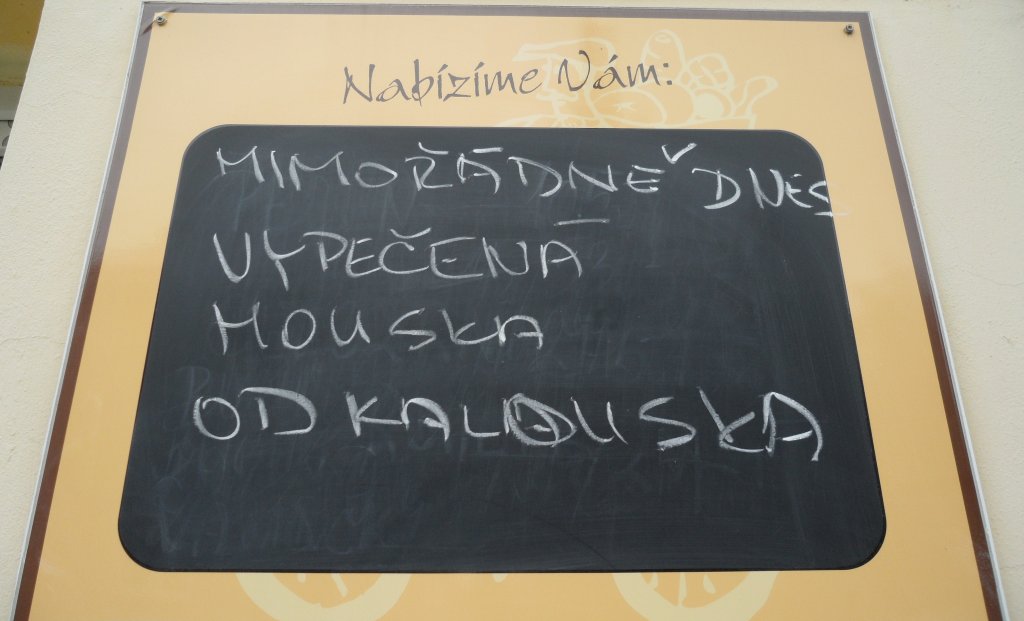 Nabízíme Vám:
MIMOŘÁDNĚ DNES
VYPEČENÁ
HOUSKA
OD KALOUSKA